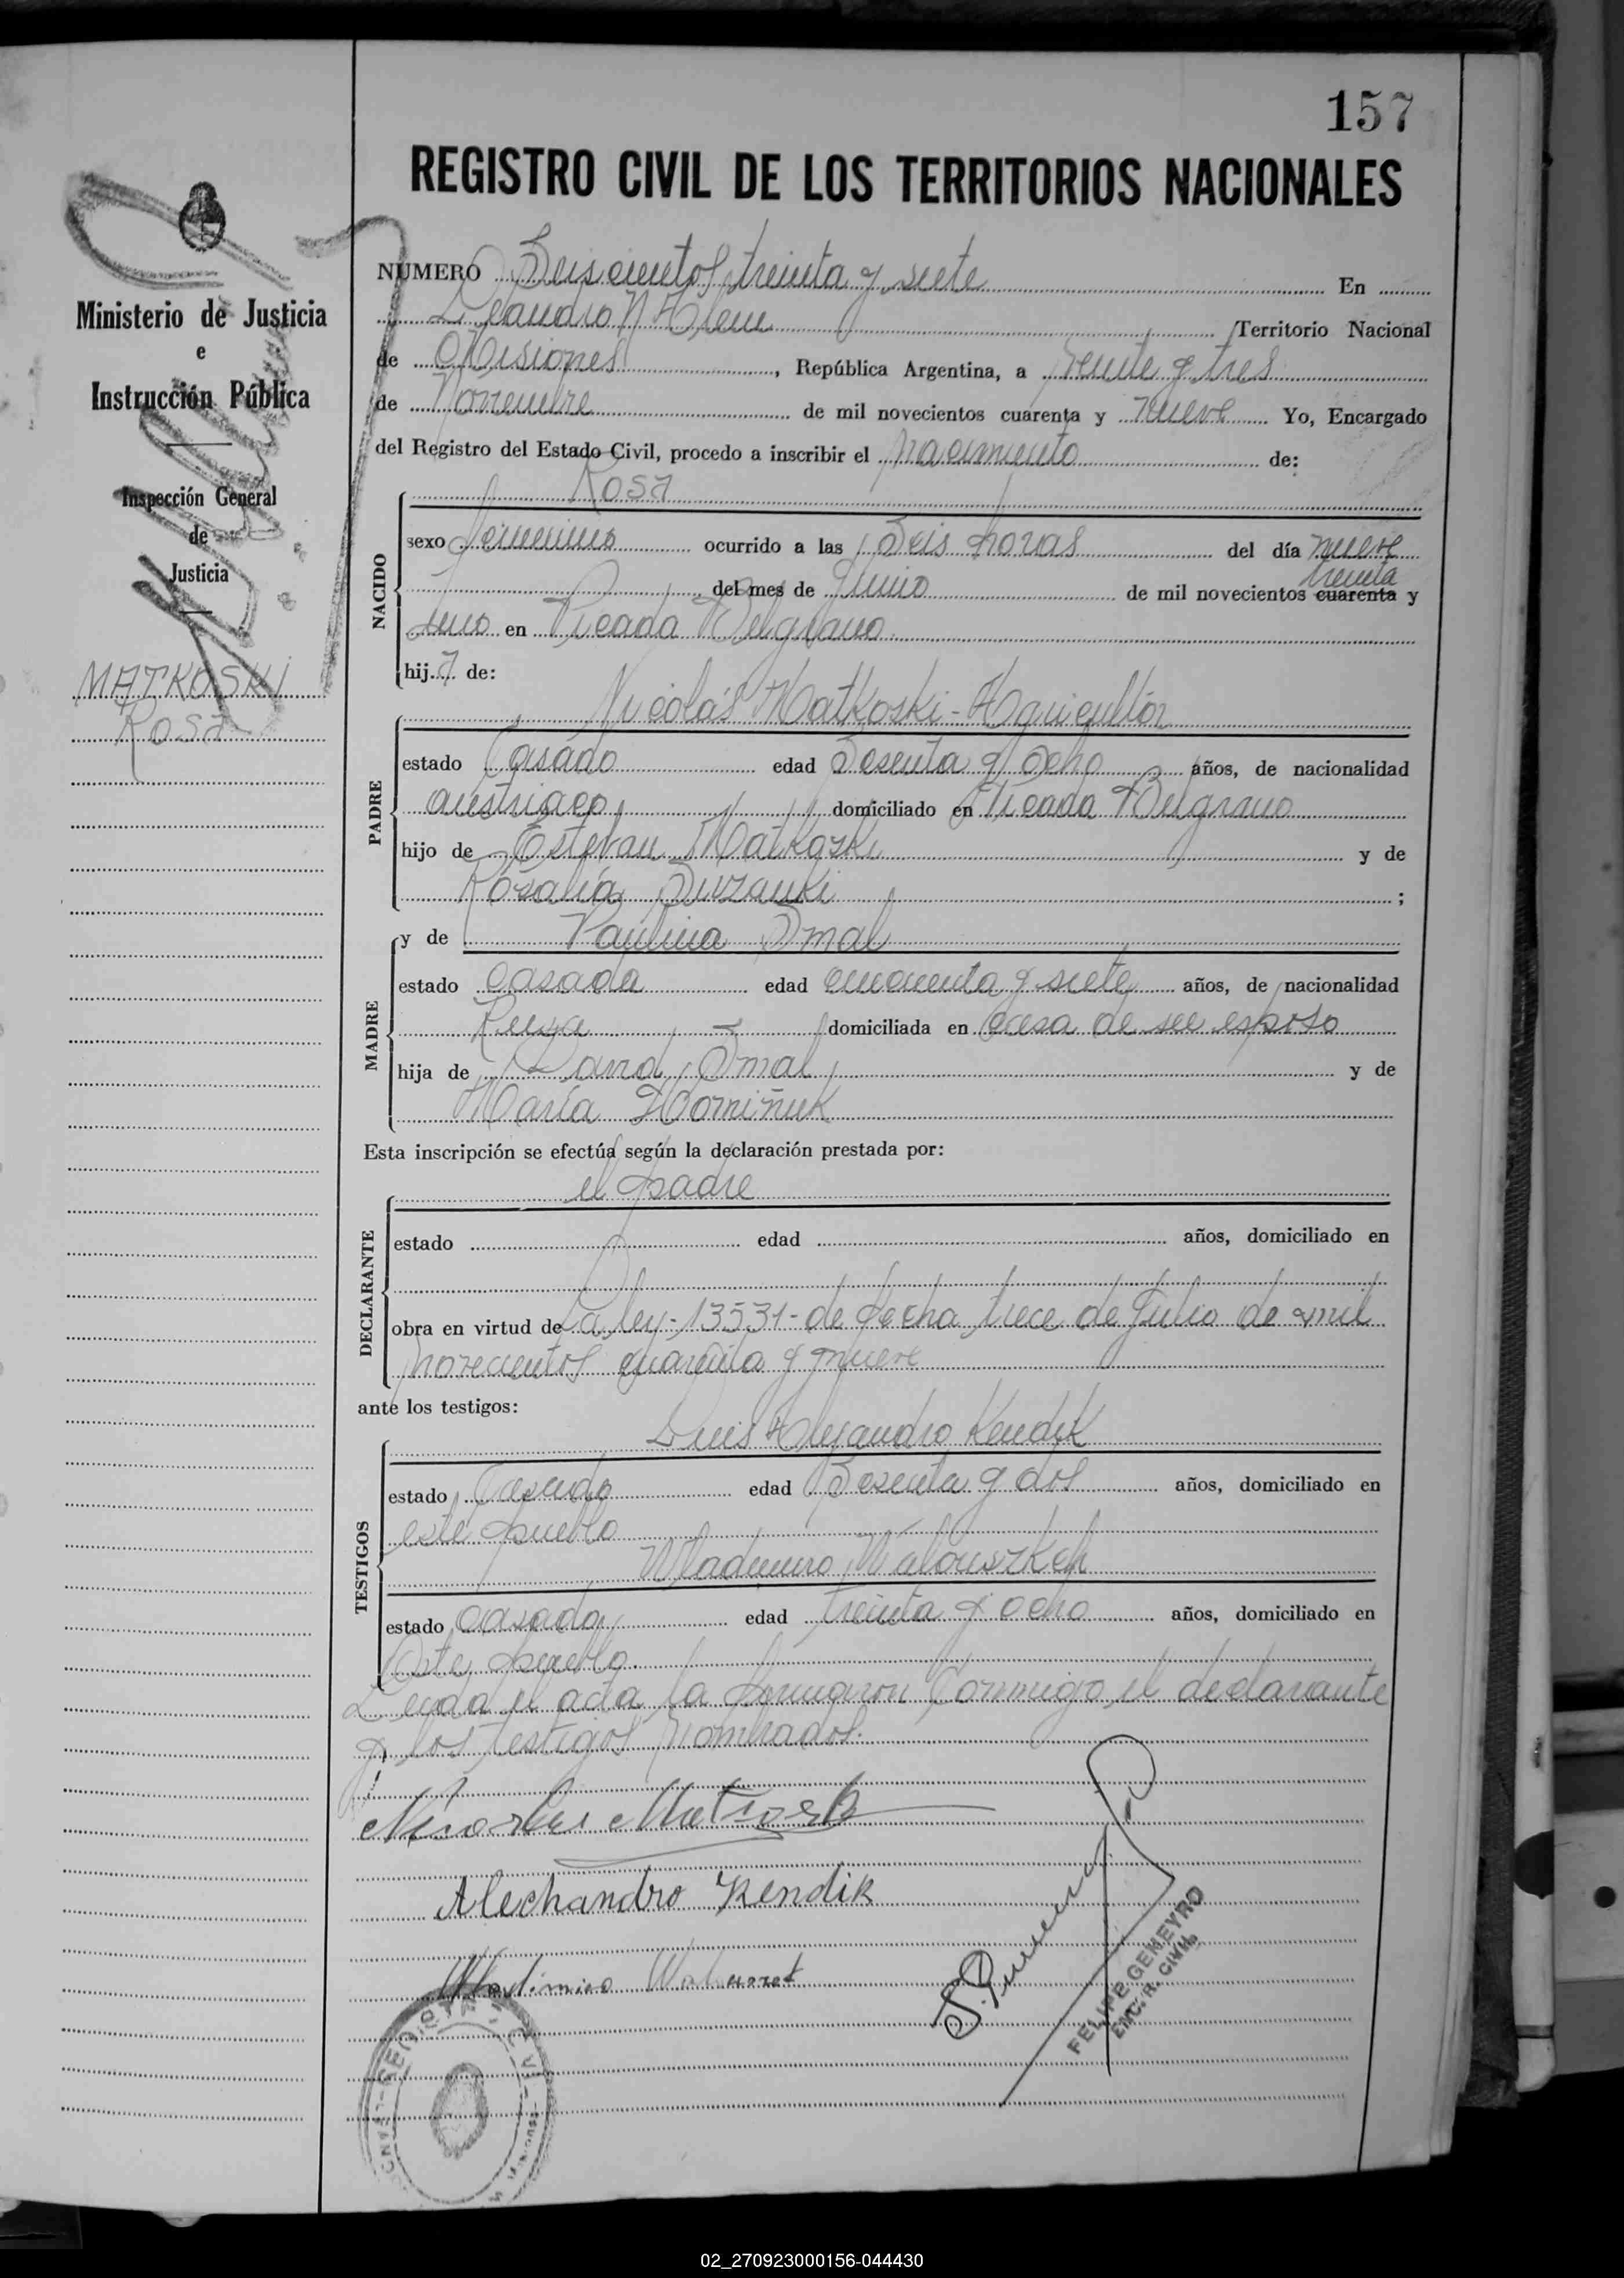 157
REGISTRO CIVIL DE LOS TERRITORIOS NACIONALES
Ministerio de Justicia
e
Instrucción Pública
Inspección General
de
Justicia
MATKOSKI
Rosa
NUMERO Seiscientos treinta y siete En
Leandro N Alem Territorio Nacional
de Misiones, República Argentina, a veinte y tres
de Noviembre de mil novecientos cuarenta y nueve Yo, Encargado
del Registro del Estado Civil, procedo a inscribir el nacimiento de:
NACIDO
Rosa
sexo femenino ocurrido a las Seis horas del día nueve
del mes de Junio de mil novecientos cuarenta treinta y
uno en Picada Belgrano
hij a de:
PADRE
Nicolás Matkoski - Agricultór
estado Casado edad Sesenta y Ocho años, de nacionalidad
austriaco domiciliado en Picada Belgrano
hijo de Estevan Matkoski y de
Rosalía ;
MADRE
y de Paulina Smal
estado casada edad cincuenta y siete años, de nacionalidad
Rusa domiciliada en casa de su esposo
hija de David Smal y de
María
Esta inscripción se efectúa según la declaración prestada por:
DECLARANTE
el padre
estado edad años, domiciliado en
obra en virtud de La ley - 13531 - de fecha trece de Julio de mil
novecientos cuarenta y nueve
ante los testigos:
TESTIGOS
Luis Alejandro Kendik
estado Casado edad Sesenta y dos años, domiciliado en
este pueblo
Wladimiro
estado casado edad treinta y ocho años, domiciliado en
Este pueblo.
Leida el acta la firmaron Conmigo el declarante
y los testigos nombrados.
Alechandro Kendik
FELIPE GEMEYRO
ENC. R. CIVIL
02_270923000156-044430